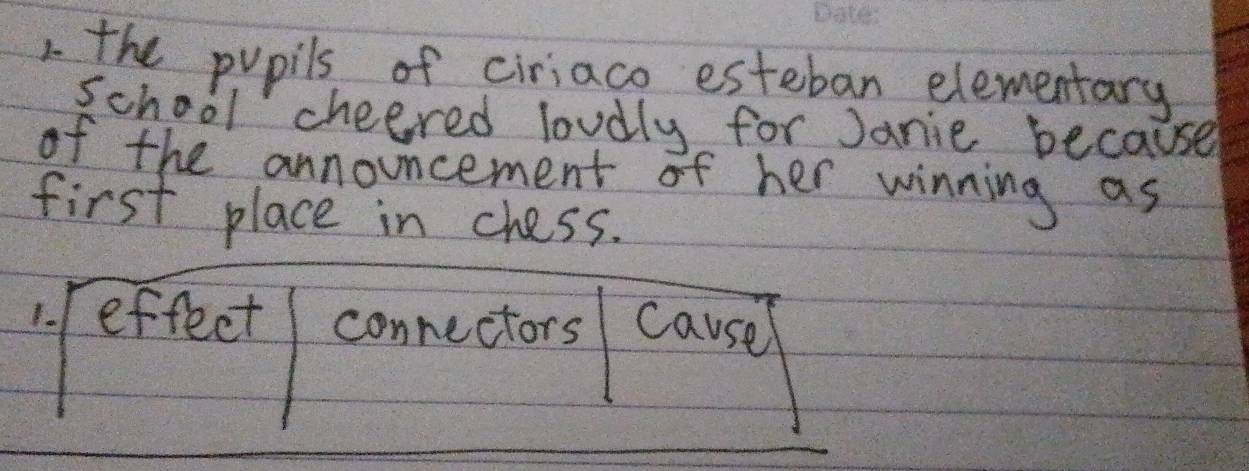 Date:
1. the pupils of ciriaco esteban elementary
school cheered loudly for Janie because
of the announcement of her winning as
first place in chess.
1. effect connectors cause